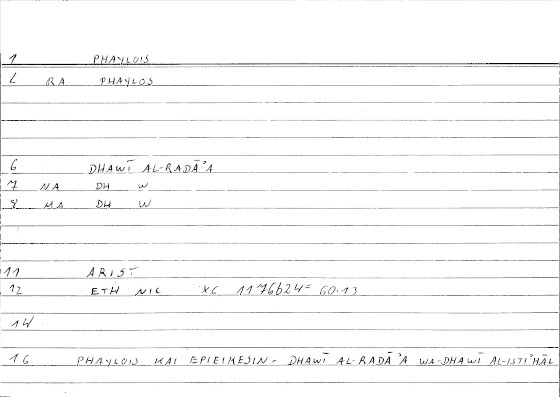 1 PHAYLOIS
L RA PHAYLOS
6 DHAWĪ AL-RADĀʾA
7 NA DH W
8 MA DH W
11 ARIST
12 ETH NIC XC 1176b24= 60.13
14
16 PHAYLOIS KAI EPIEIKESIN - DHAWĪ AL-RADĀʾA WA-DHAWĪ AL-ISTIʾHĀL